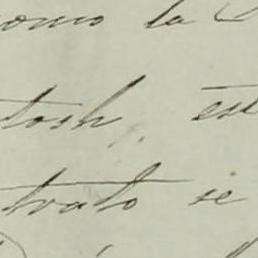 como la
tosh, est
trato se